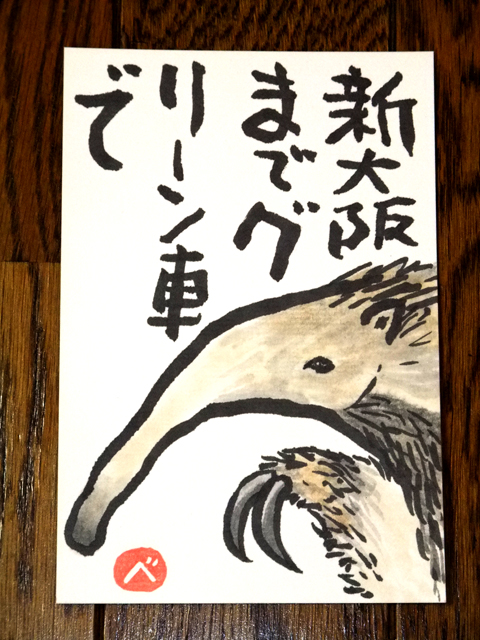 新大阪
までグ
リーン車
で
ベ